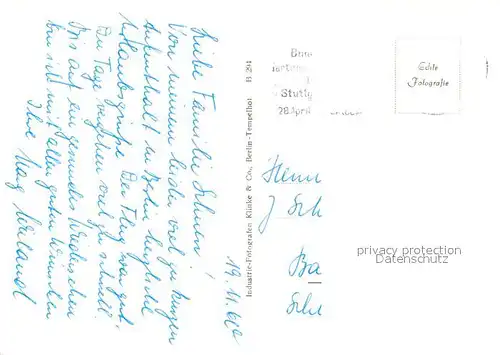 19.11.60
Liebe Familie Schnen!
Von meinem leider viel zu kurzen
Aufenthalt in Berlin herzliche
Urlaubsgrüße. Der Flug war gut.
Die Tage vergehen viel zu schnell.
Bis auf ein gesundes Wiedersehen
bin ich mit allen guten Wünschen
Ihre
Industrie-Fotografen Klinke & Co., Berlin-Tempelhof B 294
Stuttg
28 April
Echte
Fotografie
Herrn
J. Sch
Ba
Schu
privacy protection
Datenschutz